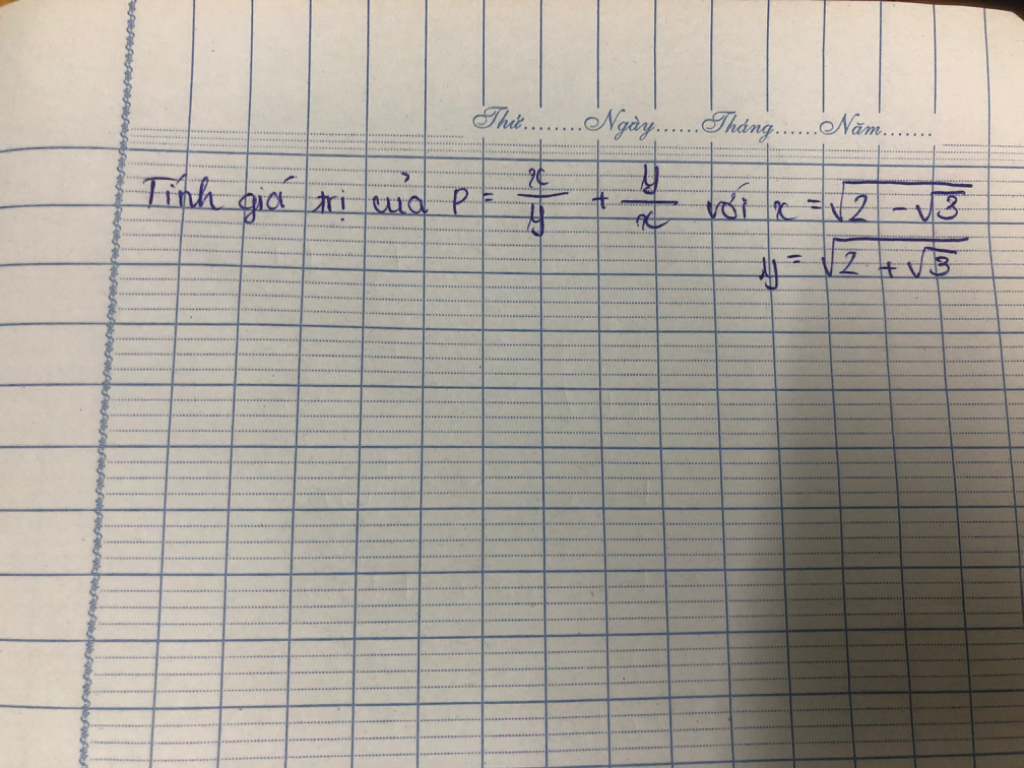 Thứ........Ngày......Tháng......Năm.......
Tính giá trị của P = x/y + y/x với x = √(2 - √3)
y = √(2 + √3)